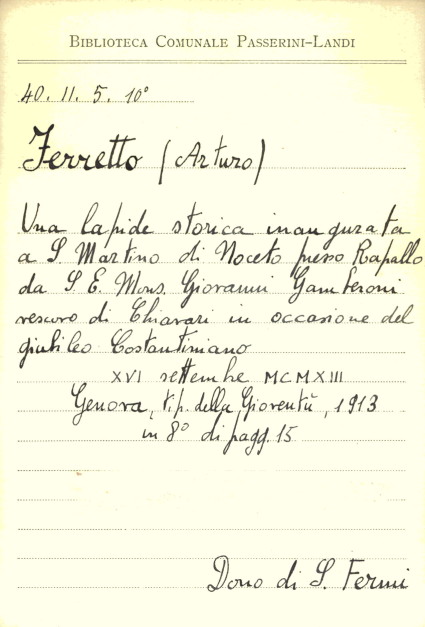 BIBLIOTECA COMUNALE PASSERINI-LANDI
40. 11. 5. 10°
Ferretto (Arturo)
Una lapide storica inaugurata
a S. Martino di Noceto presso Rapallo
da S. E. Mons. Giovanni Gamberoni
vescovo di Chiavari in occasione del
giubileo Costantiniano
XVI settembre MCMXIII
Genova, tip. della Gioventù, 1913
in 8° di pagg. 15
Dono di S. Fermi